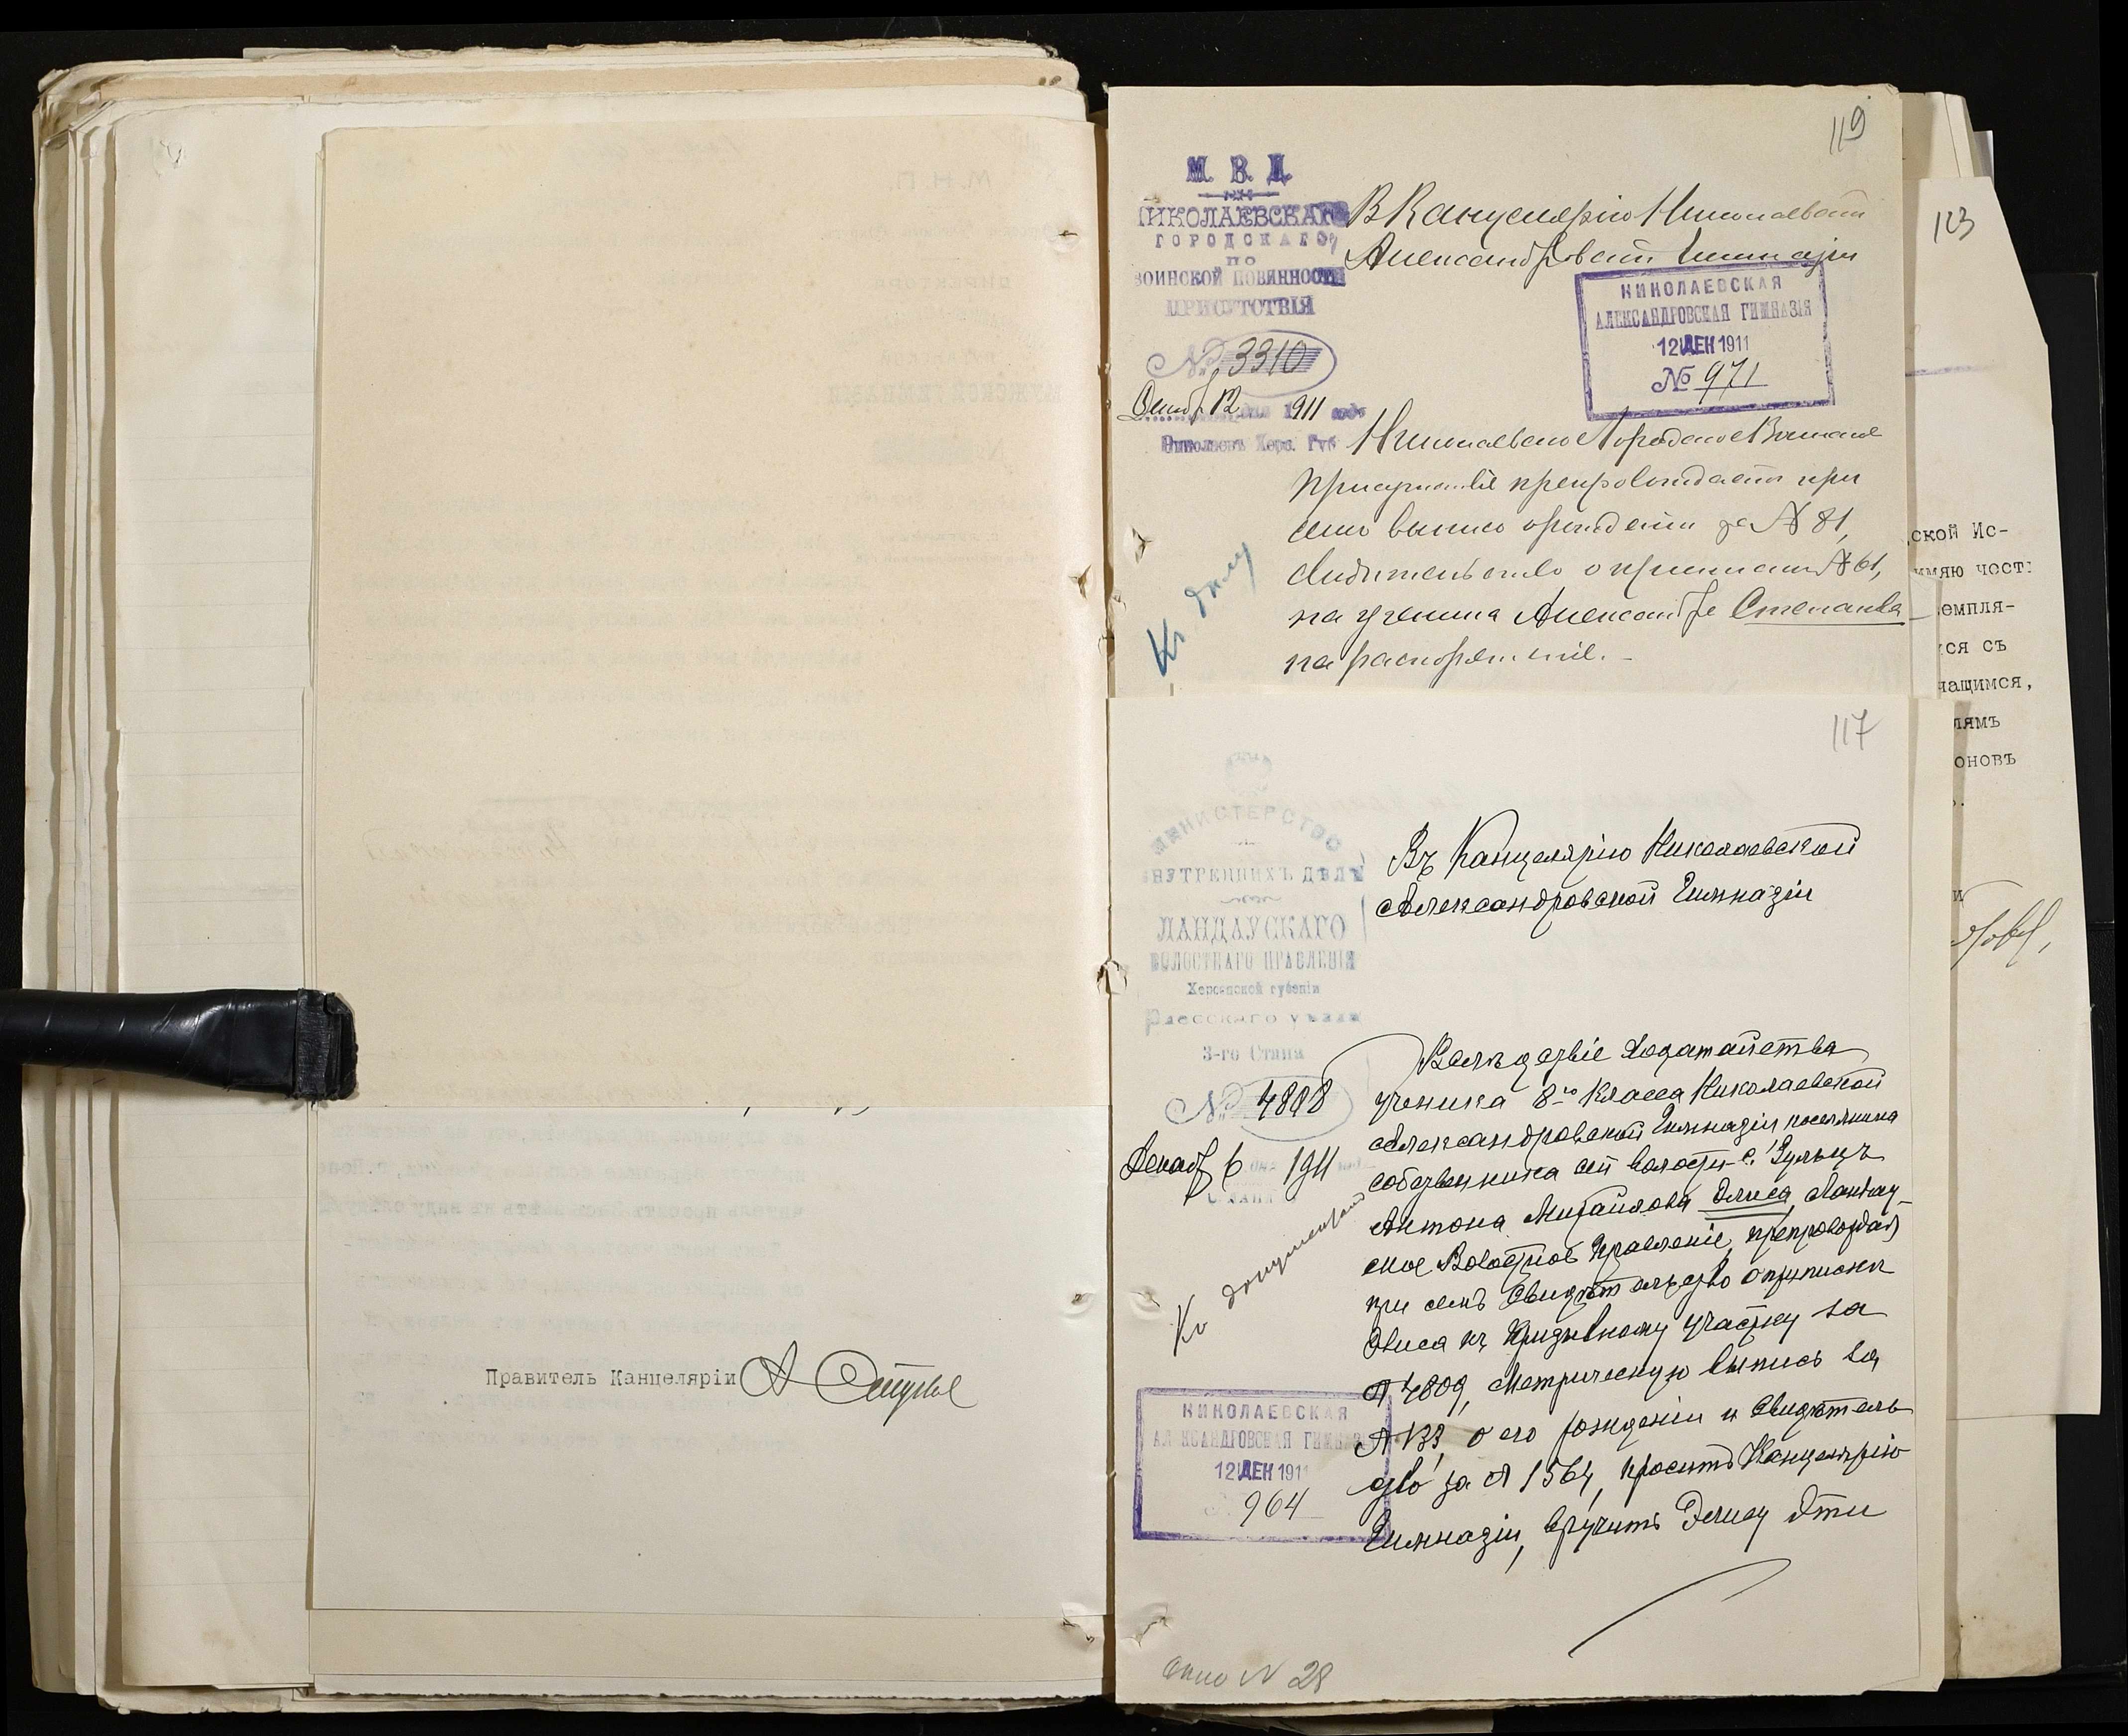 Правитель Канцеляріи
119
М. В. Д.
НИКОЛАЕВСКАГО
ГОРОДСКАГО
ПО
ВОИНСКОЙ ПОВИННОСТИ
ПРИСУТСТВІЯ
№ 3310
Декаб 12 дня 1911 года
Николаевъ Херс. Губ.
В Канцелярію Николаевской
Александровской Гимназіи
НИКОЛАЕВСКАЯ
АЛЕКСАНДРОВСКАЯ ГИМНАЗІЯ
12 ДЕК 1911
№ 971
Николаевское Городское Воинское
Присутствіе препровождаетъ при
семъ выпись о рожденіи за № 81,
свидѣтельство о припискѣ № 61,
на ученика Александра Степанова
на распоряженіе.
Къ дѣлу
117
МИНИСТЕРСТВО
ВНУТРЕННИХЪ ДѢЛЪ
ЛАНДАУСКАГО
ВОЛОСТНАГО ПРАВЛЕНІЯ
Херсонской губеніи
Одесскаго уѣзда
3-го Стана
№ 4808
Декаб 6 дня 1911
Въ Канцелярію Николаевской
Александровской Гимназіи
Вслѣдствіе ходатайства
ученика 8го класса Николаевской
Александровской Гимназіи поселянина
собственника сей волости с. Зульцъ
Антона Михайлова Элиса, Ландау-
ское Волостное Правленіе, препровождая
при семъ Свидѣтельство о припискѣ
Элиса къ призывному участку за
№ 4809, Метрическую выпись за
№ 133, о его рожденіи и Свидѣтель
ство за № 1564, проситъ Канцелярію
Гимназіи, вручить Элису эти
Къ документамъ
НИКОЛАЕВСКАЯ
АЛЕКСАНДРОВСКАЯ ГИМНАЗІЯ
12 ДЕК 1911
964
N 28
123
ской Ис-
мляю
емпля-
ся съ
чащимся,
лямъ
оновъ
и